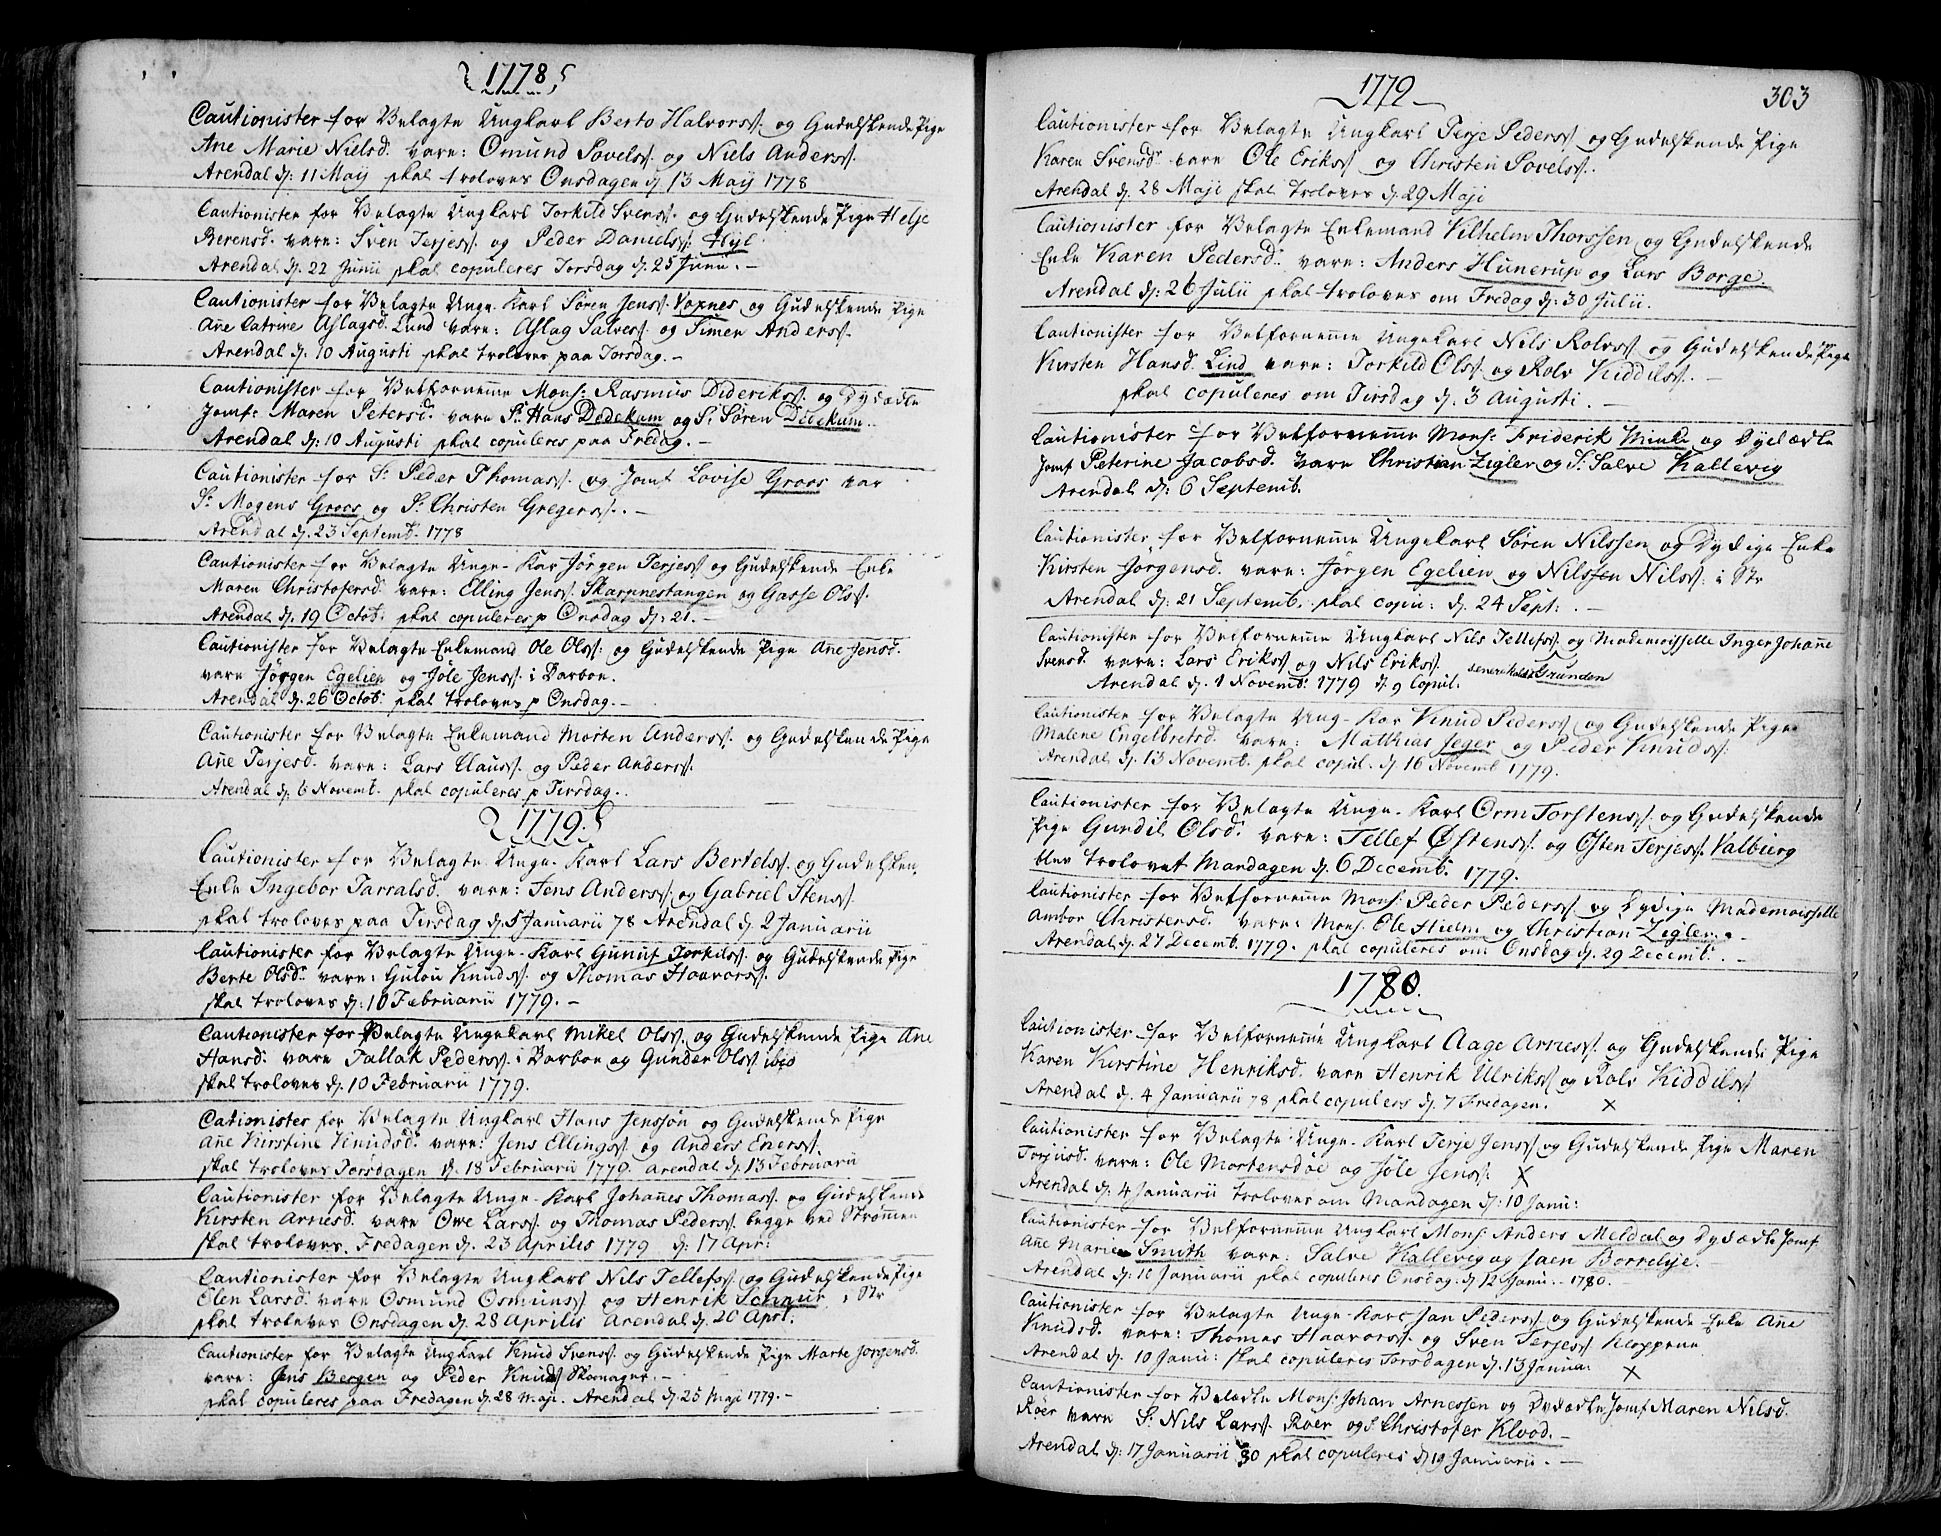 1778
Cautionister for Velagte Ungkarl Berto Halvors. og Gudelskende Pige
Ane Marie Nielsd. vare: Omund Sovels. og Niels Anders.
Arendal d: 11 Maij skal troloves Onsdagen d 13 Maij 1778
Cautionister for Velagte Ungkarl Torkild Svens. og Gudelskende Pige Helje
Berensd. vare: Sven Terjes. og Peder Daniels. Hyl.
Arendal d. 22 Junii skal copuleres Torsdag d. 25 Junii. –
Cautionister for Velagte Unge Karl Søren Jens. Voxnes og Gudelskende Pige
Ane Catrine Aslagsd. Lund vare: Aslag Salves. og Simen Anders.
Arendal d: 10 Augusti skal troloves paa Torsdag. –
Cautionister for Velfornemme Mons: Rasmus Dideriks. og Dydædle
Jomf: Maren Petersd. vare Sr. Hans Dedekam og Sr. Søren Dedekam.
Arendal d: 10 Augusti skal copuleres paa Fredag. –
Cautionister for Sr. Peder Thomas. og Jomf Lovise Groos var
Sr. Mogens Groos og Sr. Christen Gregers. –
Arendal d. 23 Septemb. 1778
Cautionister for Velagte Unge-Kar Jørgen Terjes. og Gudelskende Enke
Maren Christofersd. vare: Elling Jens. Skarpnestangen og Gasse Ols.
Arendal d. 19 Octob: skal copuleres p Onsdag d: 21. –
Cautionister for Velagte Enkemand Ole Ols. og Gudelskende Pige Ane Jensd.
vare Jørgen Egelien og Jøle Jens. i Barboe.
Arendal d. 26 Octob: skal troloves p Onsdag. –
Cautionister for Velagte Enkemand Morten Anders. og Gudelskende Pige
Ane Terjesd. vare: Lars Claus. og Peder Anders.
Arendal d. 6 Novemb. skal copuleres p Tirsdag.
1779.
Cautionister for Velagte Unge-Karl Lars Bertels. og Gudelsken.
Enke Ingebor Tarralsd. vare: Jens Anders. og Gabriel Stens.
skal troloves paa Tirsdag d. 5 Januarii 78 Arendal d. 2 Januarii
Cautionister for Velagte Unge-Karl Gunuf Torkils. og Gudelskende Pige
Berte Olsd. vare: Gulou Knuds. og Thomas Haavors.
skal troloves d: 10 Februarii 1779. –
Cautionister for Velagte Ungekarl Mikel Ols. og Gudelskende Pige Ane
Hansd: vare Tallak Peders. i Barboe og Gunder Ols. ibid
skal troloves d. 10 Februarii 1779.
Cationister for Velagte Ungkarl Hans Jenssøn og Gudelskende Pige
Ane Kirstine Knudsd: vare: Jens Ellings. og Anders Eners.
skal troloves Torsdagen d. 18 Februarii 1779. Arendal d. 13 Februarii
Cautionister for Velagte Unge-Karl Johanes Thomas. og Gudelskende
Kirsten Arnesd. vare Owe Lars. og Thomas Peders. begge ved Strømmen
skal troloves. Fredagen d. 23 Aprilis 1779 d: 17 Apr:
Cautionister for Velagte Ungkarl Nils Tellefs. og Gudelskende Pige
Elen Larsd. vare Osmund Osmuns. og Henrik Schnur i Str
skal troloves Onsdagen d. 28 Aprilis Arendal d. 20 Apri.
Cautionister for Velagte Ungkarl Knud Svens. og Gudelskende Pige Marte Jorgensd.
vare: Jens Bergen og Peder Knuds. Skomager. –
skal copuleres paa Fredagen d. 28 Maji. Arendal d. 25 Maji 1779. –
1779
303
Cautionister for Velagte Ungkarl Terje Peders. og Gudelskende Pige
Karen Svensd. vare Ole Eriks. og Christen Sovels.
Arendal d. 28 Maji skal troloves d. 29 Maji
Cautionister for Velagte Enkemand Vilhelm Thorssen og Gudelskende
Enke Karen Pedersd. vare: Anders Hunerup og Lars Borge.
Arendal d: 26 Julii skal troloves om Fredag d: 30 Julii.
Cautionister for Velfornemme Ungekarl Nils Rolvs. og Gudelskende Pige
Kirsten Hansd. Lind vare: Torkild Ols. og Rolv Kiddils. –
skal copuleres om Tirsdag d. 3 Augusti. –
Cautionister for Velfornemme Mons: Friderik Minke og Dydædle
Jomf Peterine Jacobsd. vare Christian Zigler og Sr. Salve Kallevig
Arendal d: 6 Septemb.
Cautionister for Velfornemme Ungekarl Søren Nilssen og Dydige Enke
Kirsten Jørgensd. vare: Jørgen Egelien og Nilssen Nils. i Str
Arendal d: 21 Septemb. skal copu: d. 24 Sept: –
Cautionister for Velfornemme Ungkarl Nils Tellefs. og Mademoisselle Inger Johane
Svensd. vare: Lars Eriks. og Nils Eriks. Grunden
Arendal d. 1 Novemb: 1779 d. 9 Copul.
Cautionister for Velagte Ung-Kar Knud Peders. og Gudelskende Pige
Malene Engelbretsd. vare: Matthias Jeger og Peder Knuds.
Arendal d. 13 Novemb. skal copul. d. 16 Novemb 1779.
Cautionister for Velagte Unge-Karl Orm Torstens. og Gudelskende
Pige Gundil Olsd. vare: Tellef Østens. og Østen Terjes. Valburg
blev trolovet Mandagen d. 6 Decemb. 1779.
Cautionister for Velfornemme Mons: Peder Peders. og Dydige Mademoisselle
Ambor Christensd. vare: Mons. Ole Hielm og Christian Zigler. –
Arendal d. 27 Decemb. 1779. skal copuleres om Onsdag d. 29 Decemb. –
1780.
Cautionister for Velfornemme Ungkarl Aage Arnes. og Gudelskende Pige
Karen Kirstine Henriksd. vare Henrik Ulriks. og Rolv Kiddils.
Arendal d. 4 Januarii 78 skal copulers d. 7 Fredagen. x
Cautionister for Velagte Unge-Karl Terje Jens. og Gudelskende Pige Maren
Torjusd. vare: Ole Mortensdøe og Jøle Jens. x
Arendal d: 4 Januarii troloves om Mandagen d: 10 Janu:
Cautionister for Velfornemme Ungkarl Mons: Anders Meldal og Dydædle Jomf
Ane Marie Smith vare: Salve Kallevig og Jaen Borrelye.
Arendal d: 10 Januarii skal copuleres Onsdag d 12 Janu. 1780.
Cautionister for Velagte Unge-Karl Jan Peders. og Gudelskende Enke Ane
Knudsd. vare: Thomas Haavors. og Sven Terjes. Kloppene
Arendal d. 10 Janu: skal copuleres Torsdagen d. 13 Janua: x
Cautionister for Velædle Mons: Johan Arnessen og Dydædle Jomf Maren Nilsd.
Roer vare Sr. Nils Lars. Roer og S Christofer Klood. –
Arendal d: 17 Januarii 80 skal copuleres d 19 Januarii. –